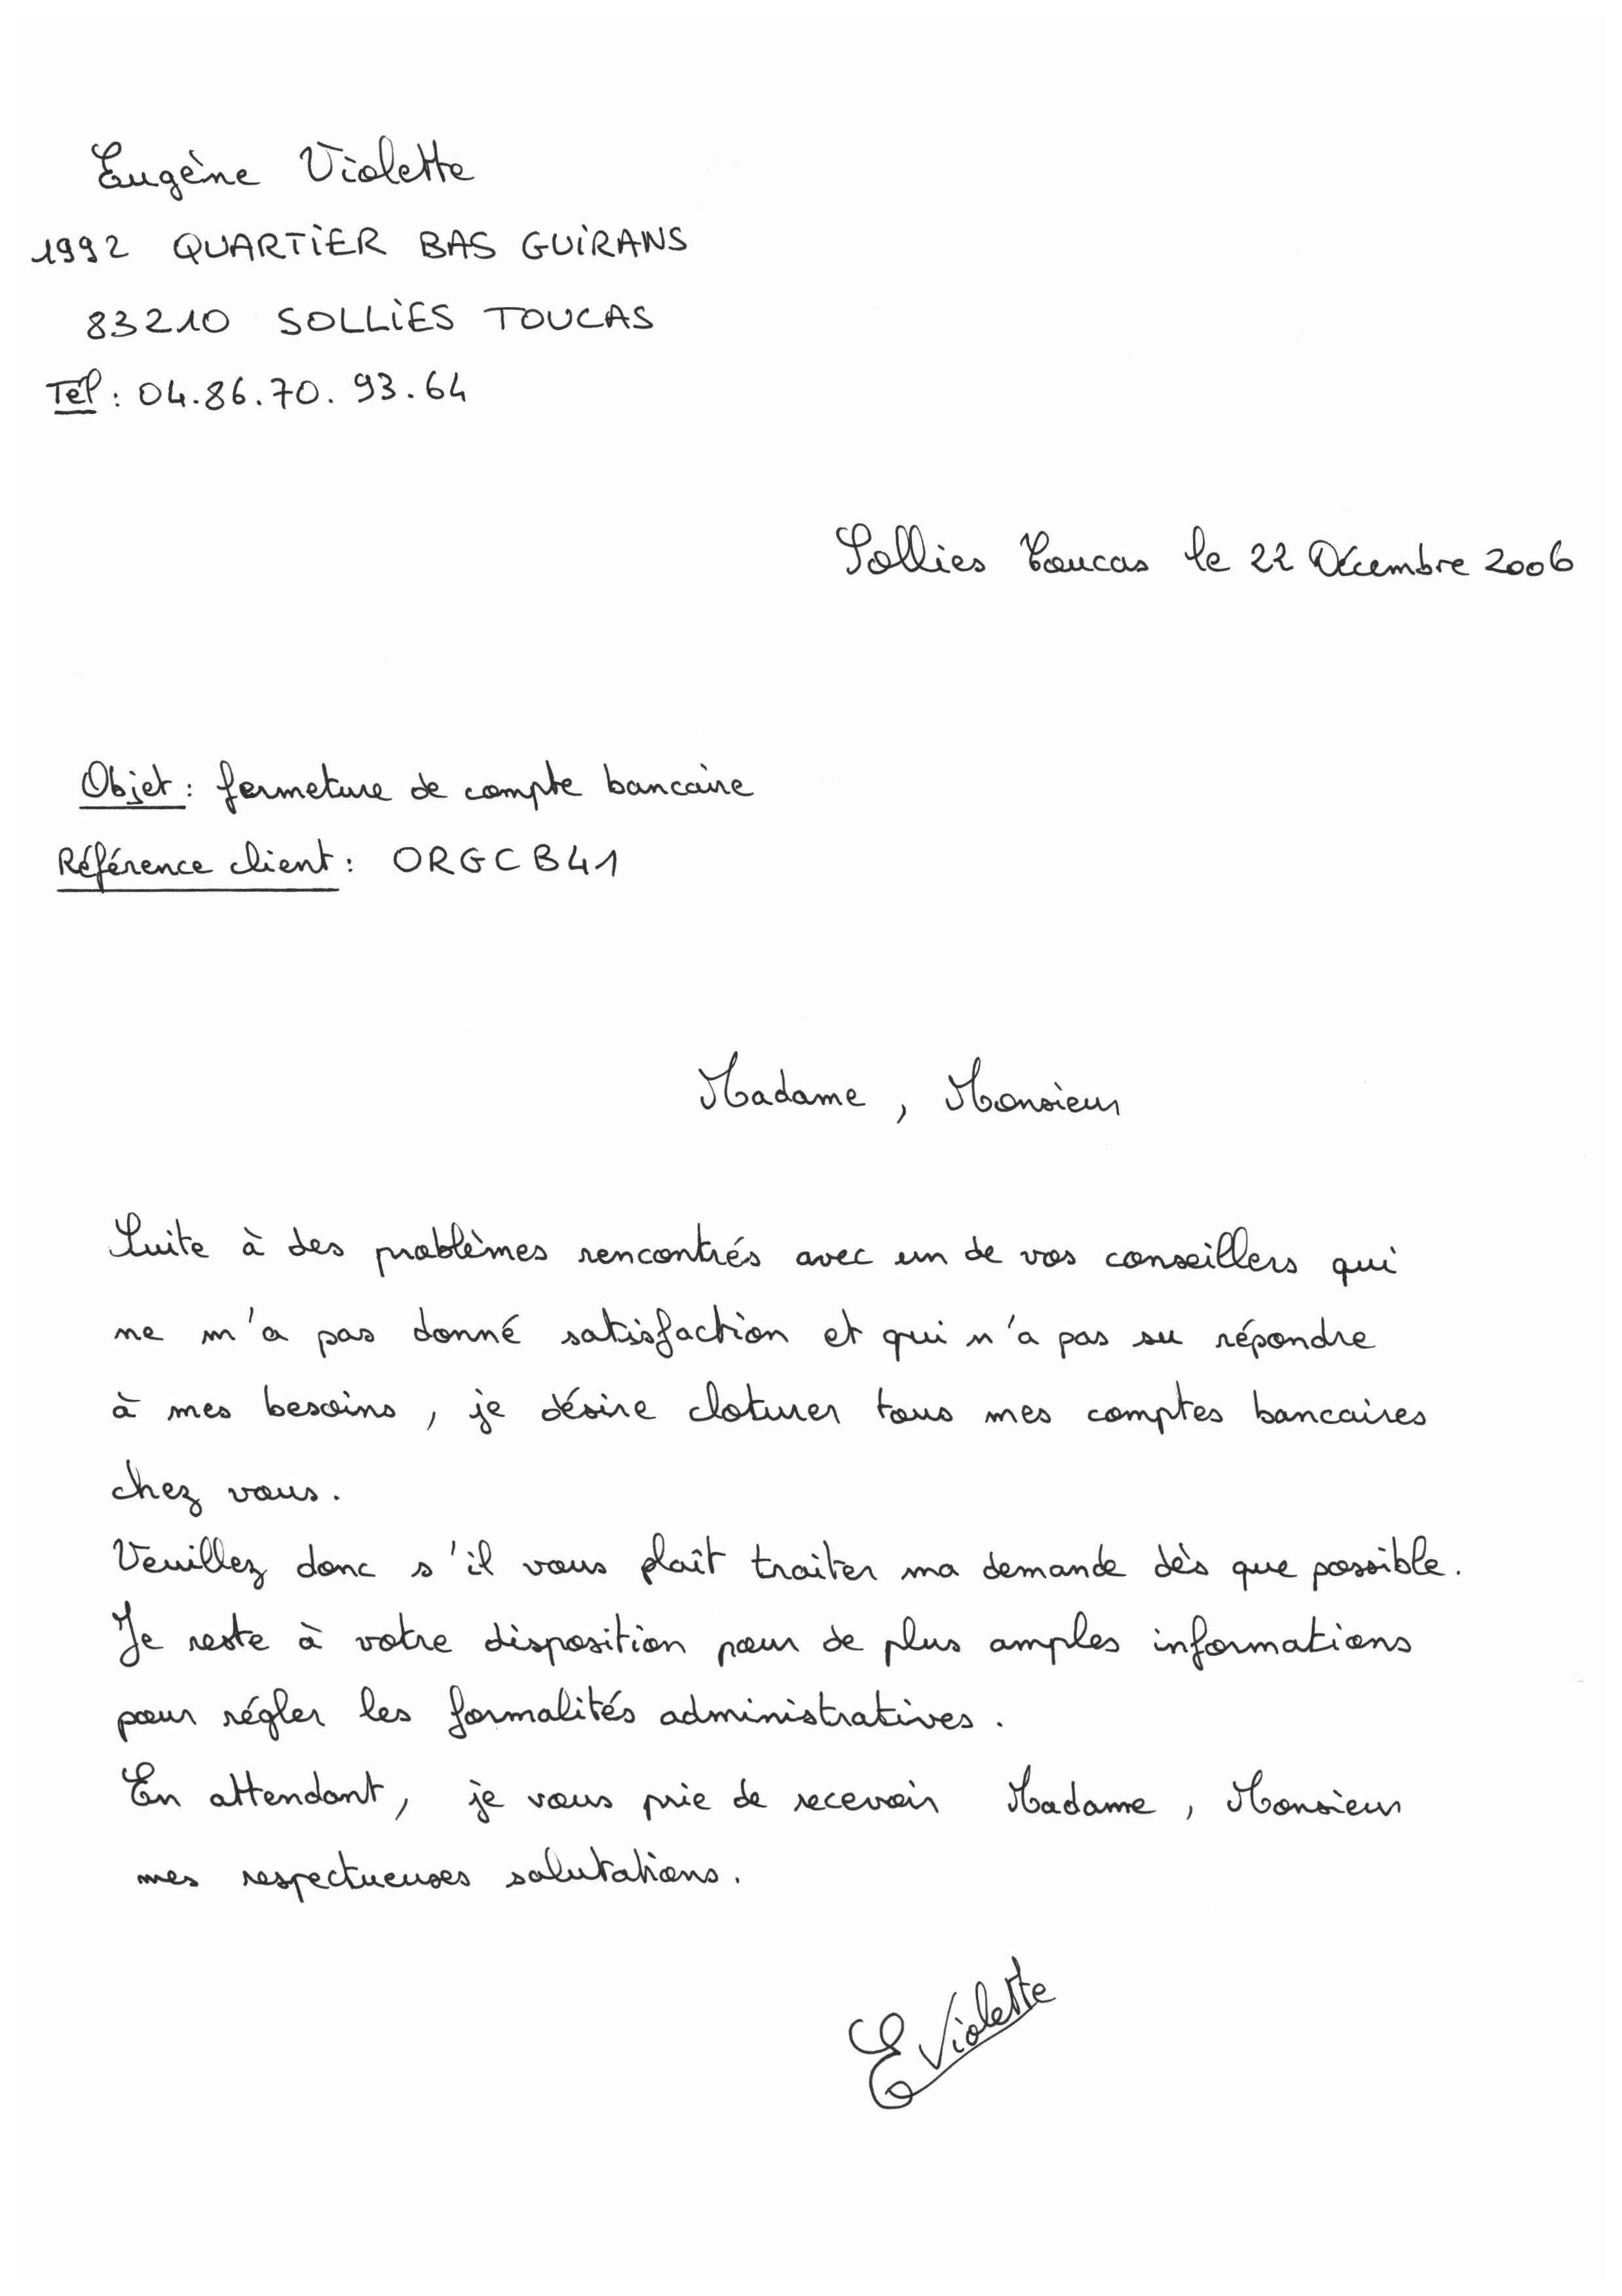 Eugène Violette
1992 QUARTIER BAS GUIRANS
83210 SOLLIES TOUCAS
Tél : 04.86.70.93.64
Sollies Toucas le 22 Décembre 2006
Objet : fermeture de compte bancaire
Référence client : ORGCB41
Madame, Monsieur
Suite à des problèmes rencontrés avec un de vos conseillers qui
ne m'a pas donné satisfaction et qui n'a pas su répondre
à mes besoins, je désire cloturer tous mes comptes bancaires
chez vous.
Veuillez donc s'il vous plaît traiter ma demande dès que possible.
Je reste à votre disposition pour de plus amples informations
pour régler les formalités administratives.
En attendant, je vous prie de recevoir Madame, Monsieur
mes respectueuses salutations.
E Violette